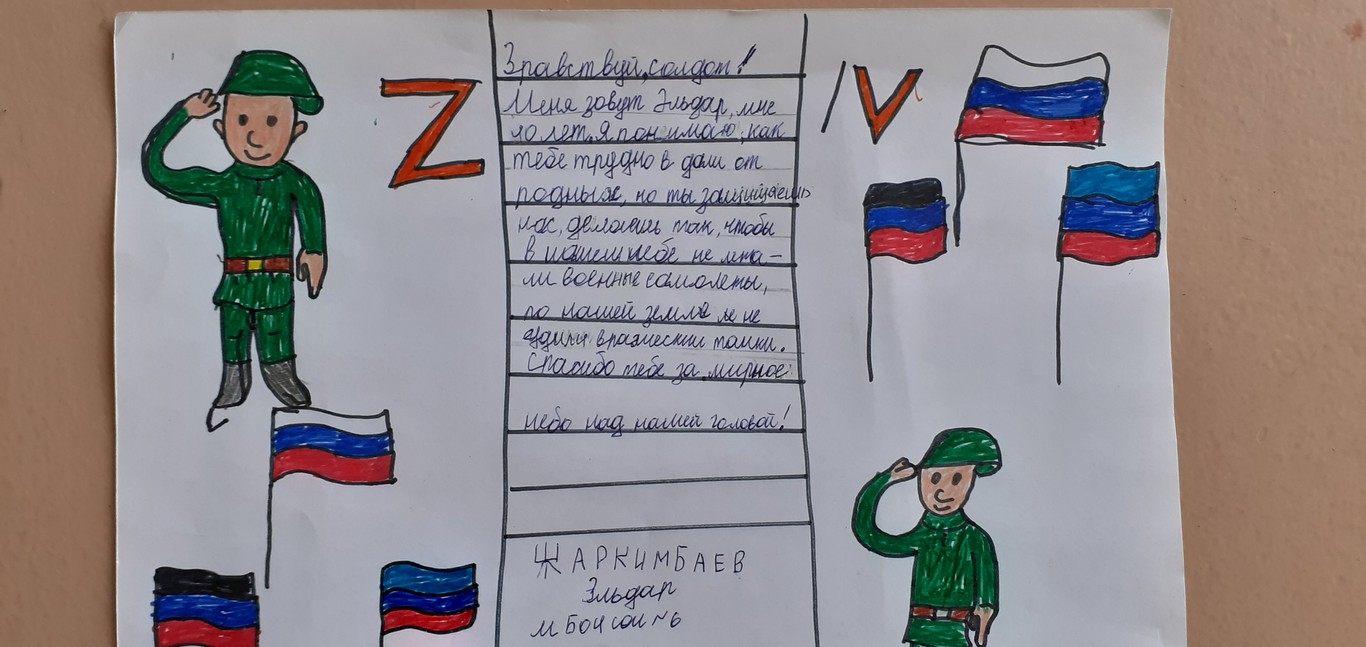 Z
Здравствуй, солдат!
Меня зовут Эльдар, мне
10 лет. Я понимаю, как
тебе трудно в дали от
родных, но ты защищаешь
нас, делаешь так, чтобы
в нашем небе не лета-
ли военные самолеты,
по нашей земле не
вражеские танки.
Спасибо тебе за мирное
небо над нашей головой!
ЖАРКИМБАЕВ
Эльдар
V